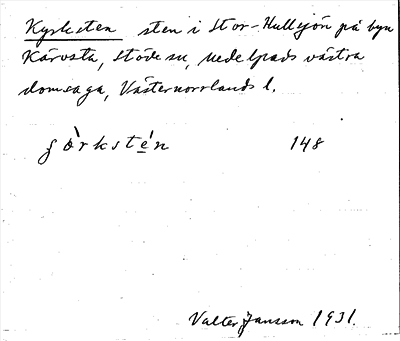 Kyrksten sten i Stor-Hullsjön på byn
Kärvsta, Stöde sn, Medelpads västra
domsaga, Västernorrlands l.
ʂö̀rkstén 148
Valter Jansson 1931.